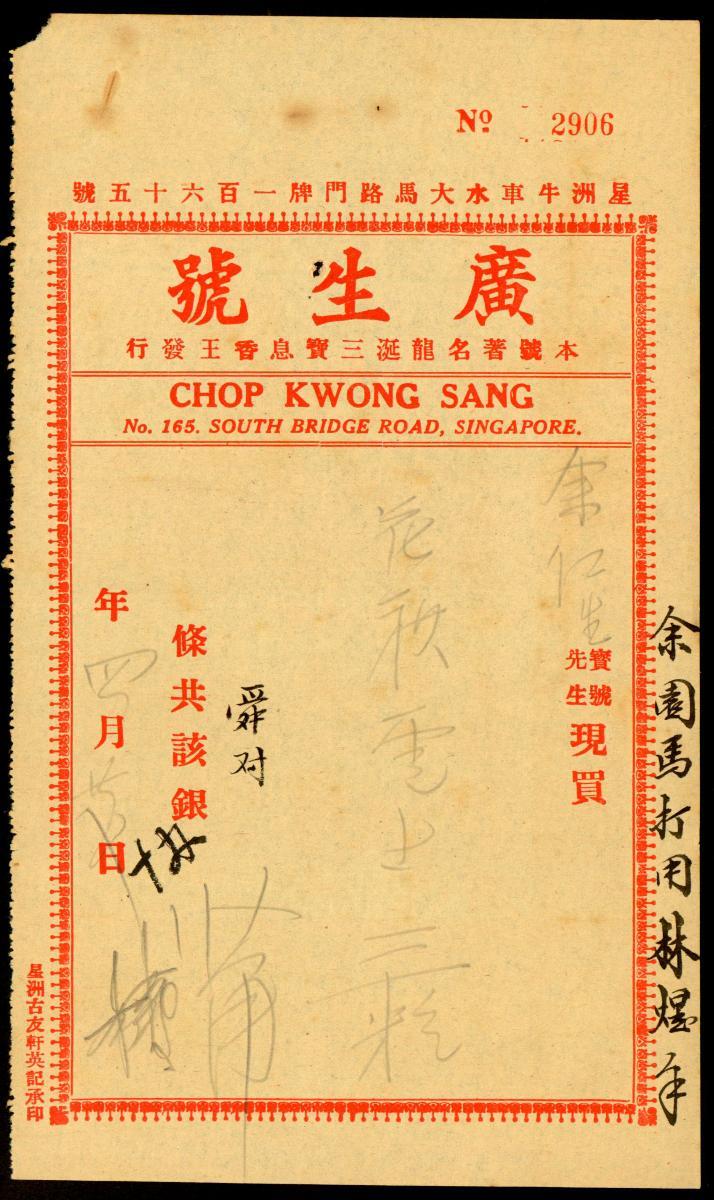 Nº 2906
星洲牛車水大馬路門牌一百六十五號
廣生號
本號著名龍涎三寶息香王發行
CHOP KWONG SANG
No. 165. SOUTH BRIDGE ROAD, SINGAPORE.
余園馬打用林煜手
余仁生
寶號
先生
現買
舜对
條共該銀
年四月日
星洲古友軒英記承印